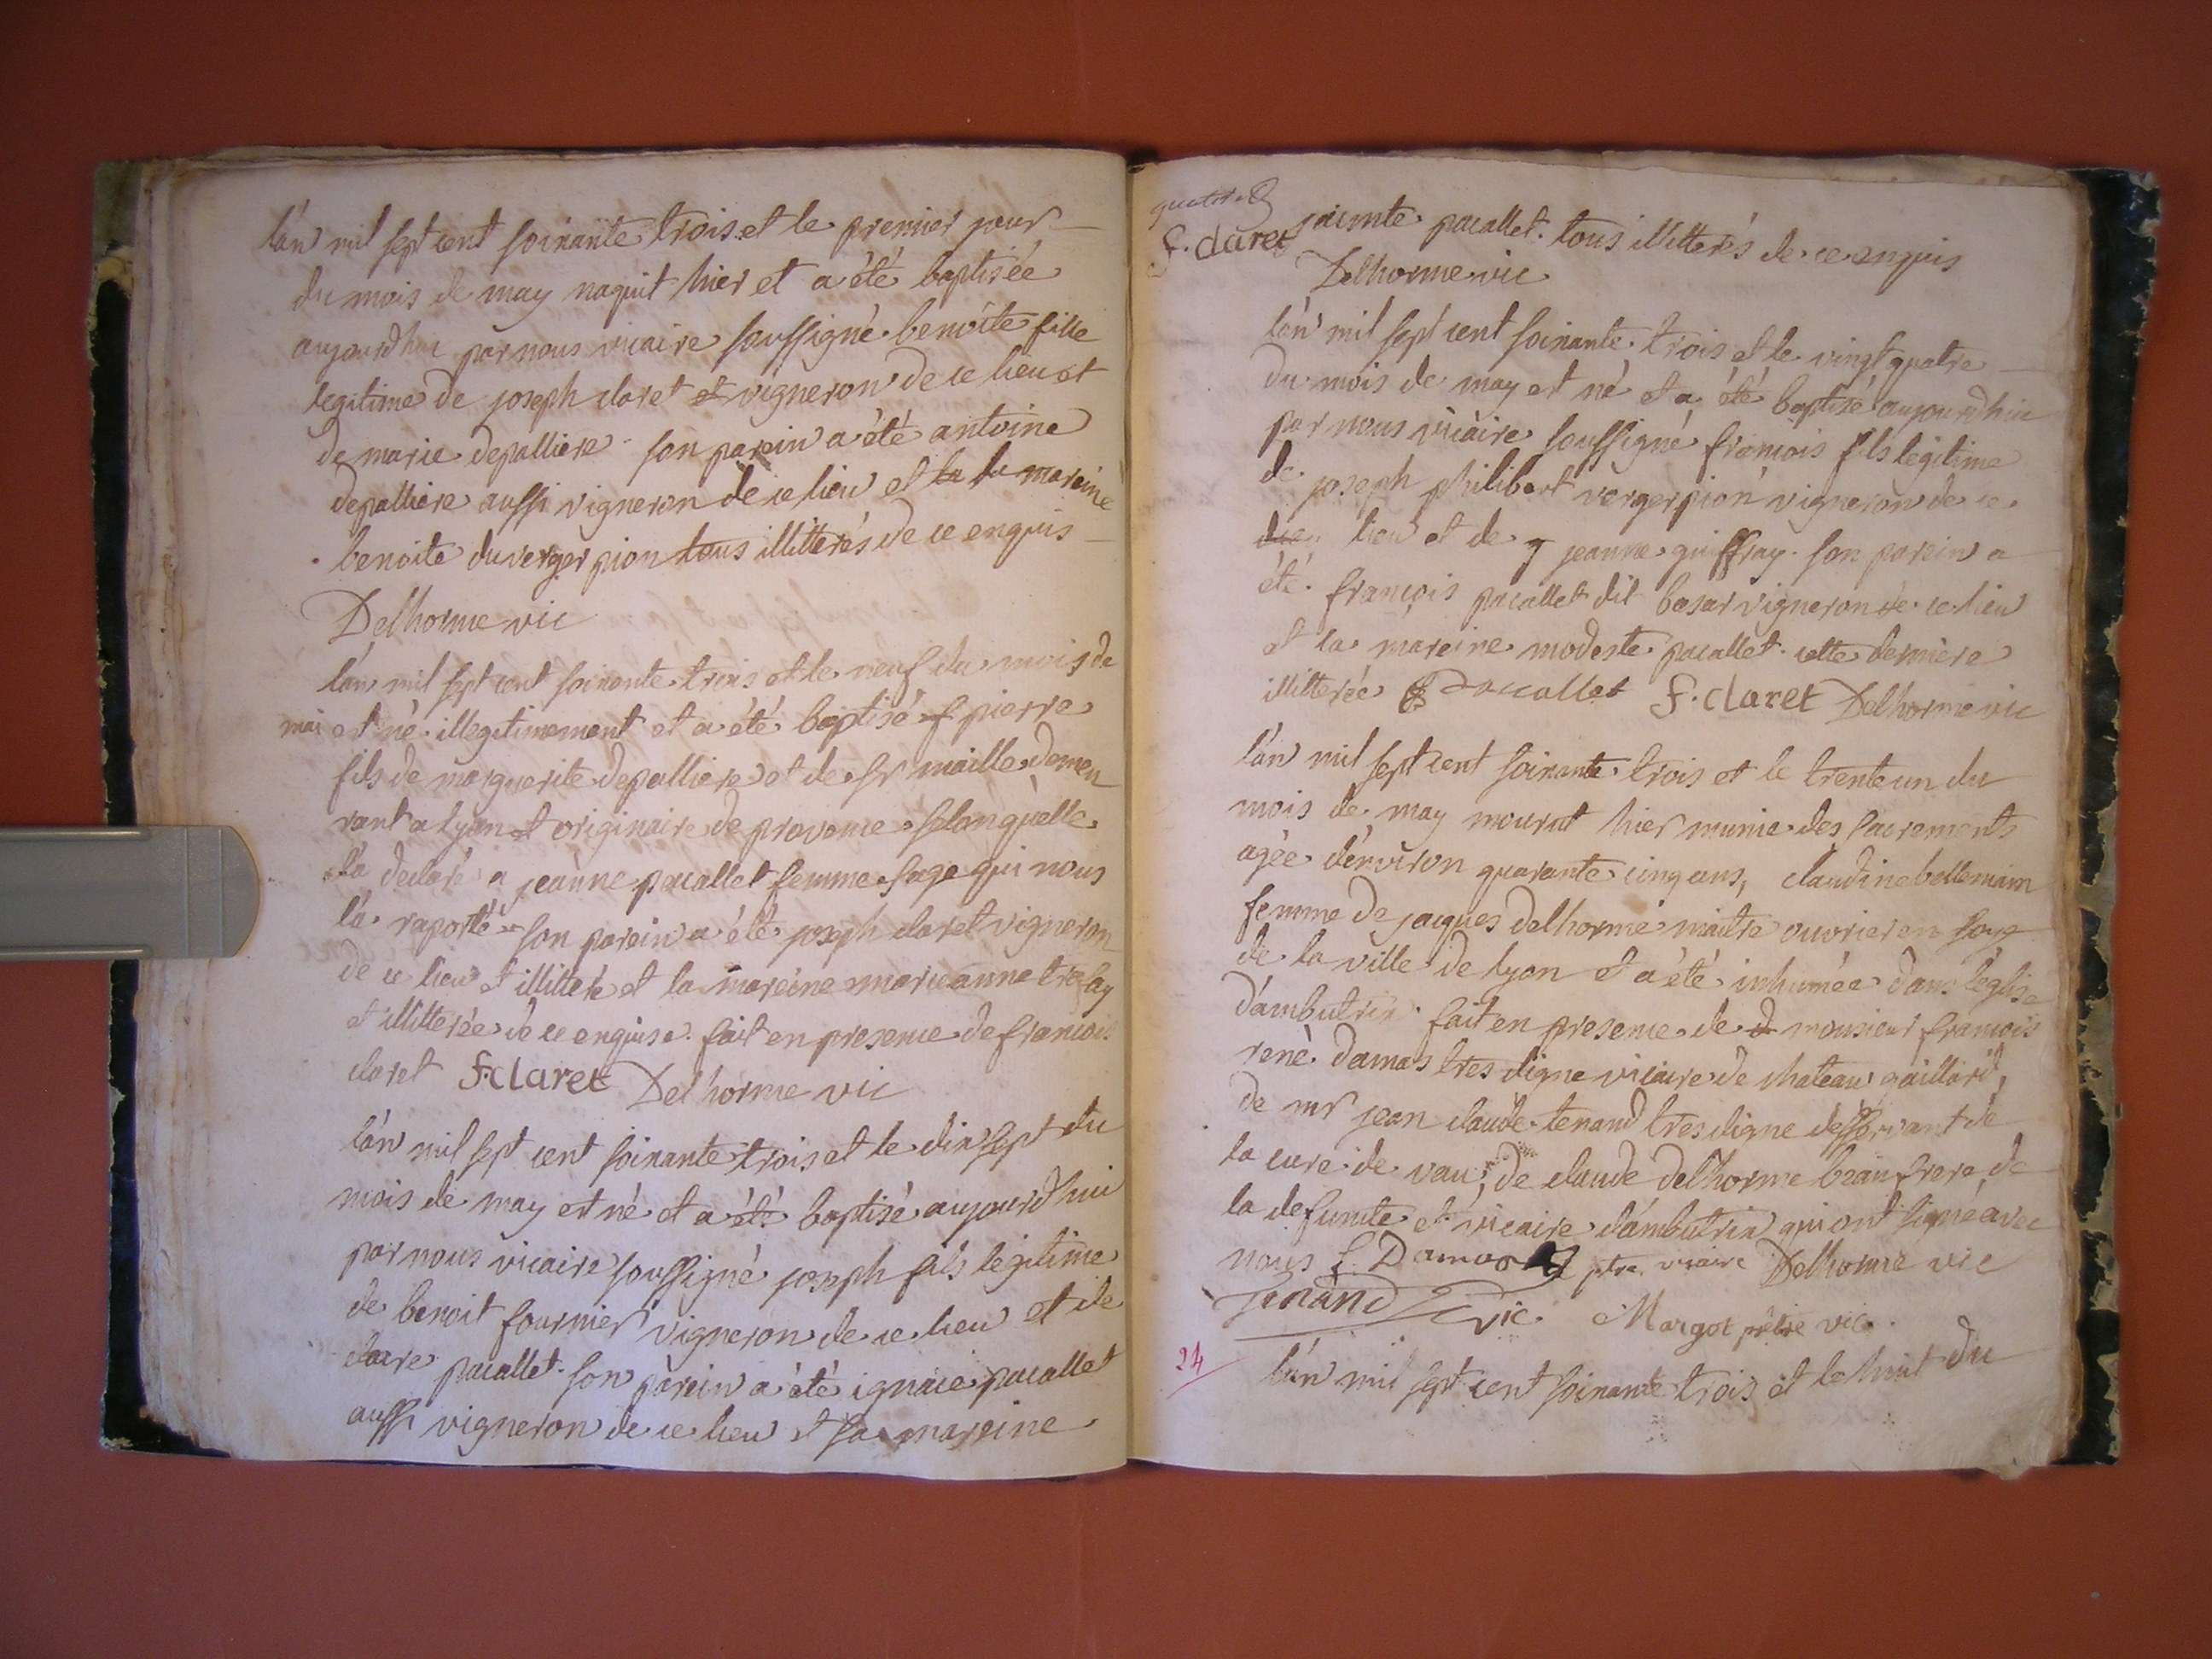 lán mil sept cent soixante trois et le premier jour
du mois de may naquit hier et a été baptisée
aujourdhui par nous vicaire soussigné benoîte fille
legitime de joseph claret et vigneron de ce lieu et
de marie depalliere son parein a été antoine
depalliere aussi vigneron de ce lieu et la la mareine
benoite duverger pion tous illitterés de ce enquis
Delhorme vic
lán mil sept cent soixante trois et le neuf du mois de
mai est né illegitimement et a été baptisé f pierre
fils de marguerite depalliere et de sr maille demeu
rant a lyon et originaire de provence selon qúelle
la declaré a jeanne pacallet femme sage qui nous
lá raporté son parein a été joseph claret vigneron
de ce lieu et illitteré et la mareine marieanne
et illitterée de ce enquise fait en presence de francois
claret F. claret Delhorme vic
lán mil sept cent soixante trois et le dix sept du
mois de may est né et a été baptisé aujourdhui
par nous vicaire soussigné joseph fils legitime
de benoit fournier vigneron de ce lieu et de
claire pacallet son parein a été ignace pacallet
aussi vigneron de ce lieu et sa mareine
F. claret jacinte pacallet tous illitterés de ce enquis
Delhorme vic
lán mil sept cent soixante trois et le vingt quatre
du mois de may est né et a été baptisé aujourdhui
par nous vicaire soussigné francois fils legitime
de joseph philibert vergerpion vigneron de ce
lieu et de g jeanne guiffray son parein a
été françois pacallet dit basar vigneron de ce lieu
et la mareine modeste pacallet cette derniere
illitterée pacallet F. claret Delhorme vic
lán mil sept cent soixante trois et le trente un du
mois de may mourut hier munie des sacrements
agée dénviron quarante cinq ans, claudine bellemain
femme de jacques delhorme maitre ouvrier en soye
de la ville de lyon et a été inhumée dans léglise
dámbutrix fait en presence de d monsieur francois
rené damas tres digne vicaire de chateau gaillard,
de mr jean claude tenand tres digne desservant de
la cure de vau, de claude delhorme beaufrere de
la defunte et vicaire dámbutrix qui ont signé avec
nous f. Damas ptre vicaire Delhorme vic
Tenand vic. Margot prêtre vic.
24
lán mil sept cent soixante trois et le huit du